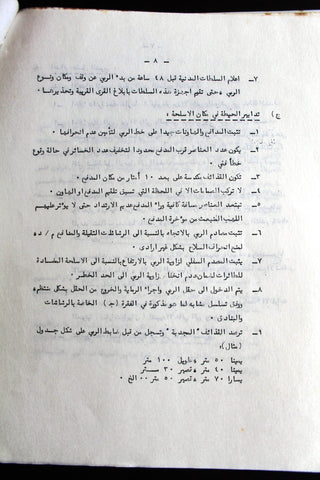 - ٨ -
٧- اعلام السلطات المدنية قبل ٤٨ ساعة من بدء الرمي عن وقت ومكان ونوع
الرمي ، وحتى تقيم اجهزة هذه السلطات بابلاغ القرى القريبة وتحذيرها ٠
ج) تدابير الحيطة في مكان الاسلحة :
١- تثبت المدافع والهاونات جيدا على خط الرمي لتأمين عدم انحرافها ٠
٢- يكون عدد العناصر قرب المدفع محدود لتخفيف الخسائر في حالة وقوع
خطأ فني ٠
٣- تكون القذائف مكدسة على بعد ١٠ أمتار من مكان المدفع ٠
٤- لا تركب الصمامات الا في اللحظة التي تسبق تلقيم المدفع او الهاون ٠
٥- تبتعد العناصر مسافة كافية وراء المدفع عديم الارتداد حتى لا يؤثر عليهم
اللهب المنبعث من مؤخرة المدفع ٠
٦- تثبت مصادم الرمي بالاتجاه بالنسبة الى الرشاشات الثقيلة والمدافع م / ط
لمنع انحراف السلاح بشكل غير ارادي ٠
٧- يثبت المصدم السفلي لزاوية الرمي بالارتفاع بالنسبة الى الاسلحة المضادة
للطائرات لضمان عدم زاوية الرمي الى الحد الخطر ٠
٨- يتم الدخول الى حقل الرمي واجراء الرماية والخروج من الحقل بشكل منتظم
ووفق تسلسل مشابه لما هو مذكور في الفقرة ( جـ ) الخاصة بالرشاشات
والبنادق ٠
٩- ترصد القذائف المجدية وتسجل من قبل ضابط الرمي على شكل جدول
( مثال ) :
يمينا ٥٠ متر طويل ١٠٠ متر
يمينا ٤٠ متر قصير ٣٠ متر
يسارا ٧٠ متر قصير ٥٠ متر ٠٠ الخ ٠